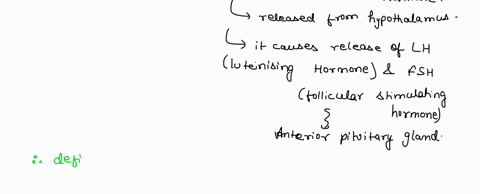 ↳ released from hypothalamus.
↳ it causes release of LH
(luteinising Hormone) & FSH
(follicular stimulating
hormone)
Anterior pituitary gland.
∴ defi